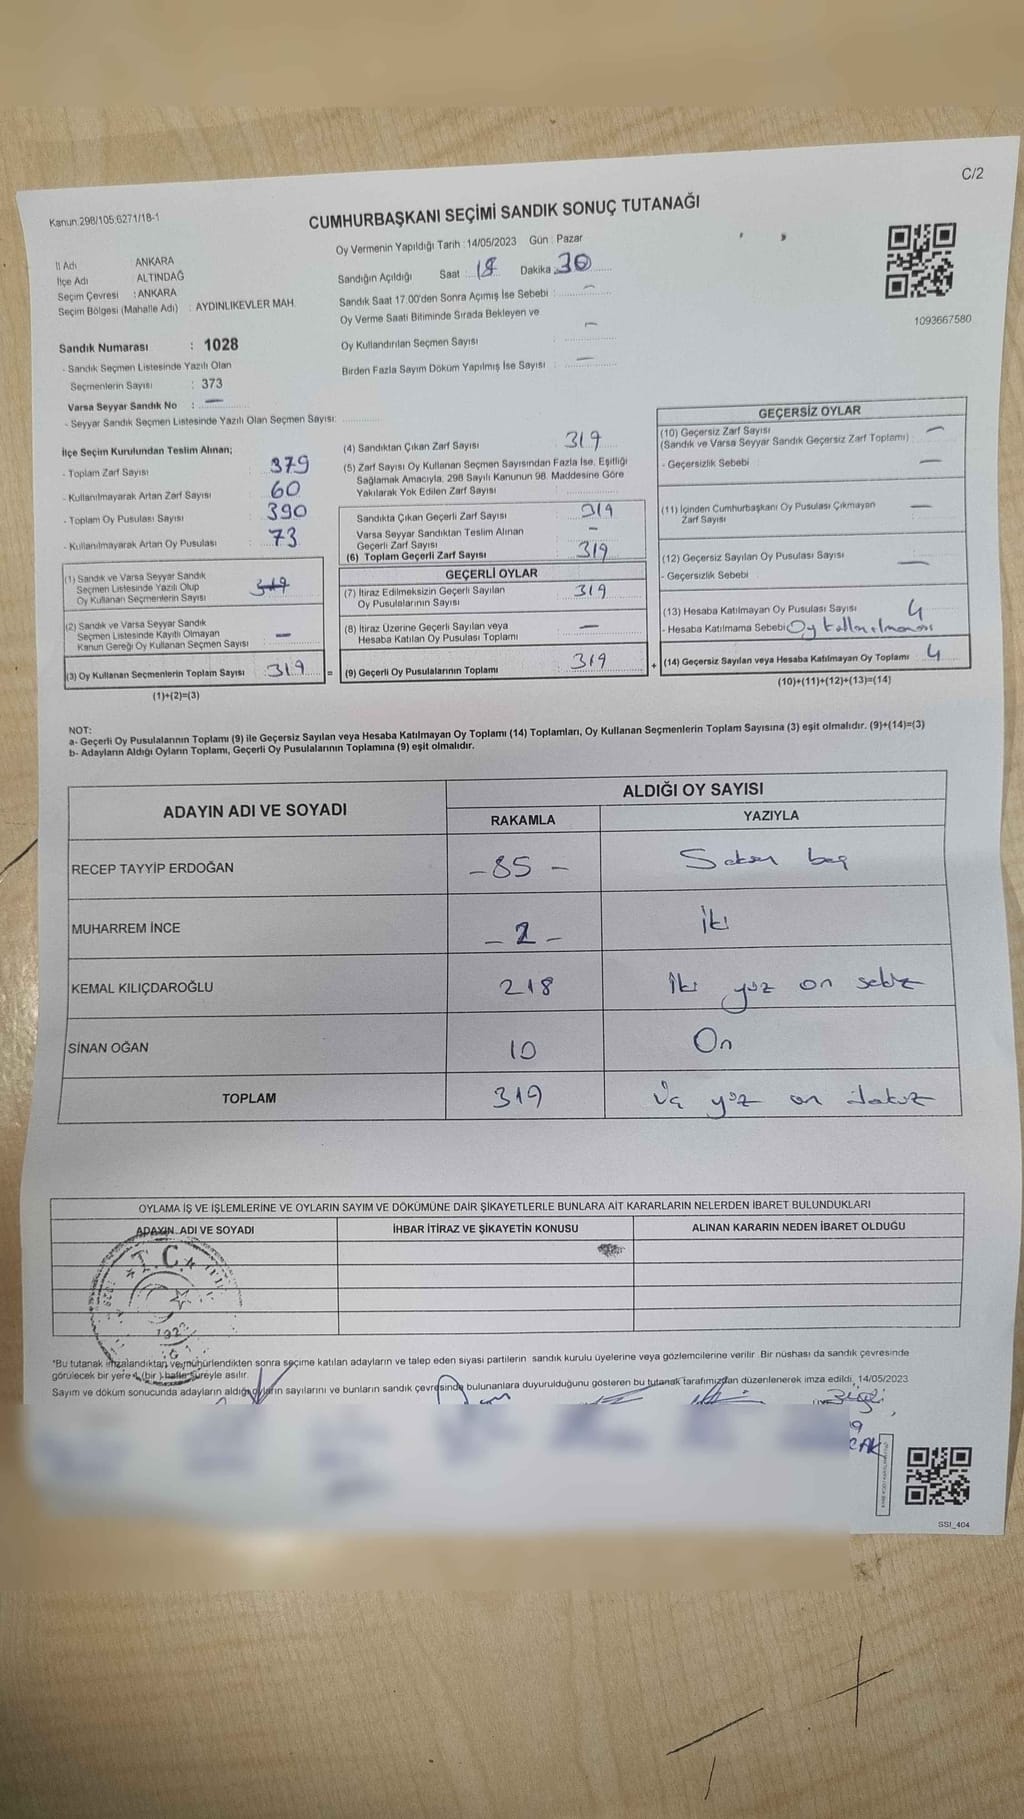 C/2
Kanun 298/105 6271/18-1
CUMHURBAŞKANI SEÇİMİ SANDIK SONUÇ TUTANAĞI
İl Adı : ANKARA
İlçe Adı : ALTINDAĞ
Seçim Çevresi : ANKARA
Seçim Bölgesi (Mahalle Adı) : AYDINLIKEVLER MAH.
Sandık Numarası : 1028
- Sandık Seçmen Listesinde Yazılı Olan
Seçmenlerin Sayısı : 373
Varsa Seyyar Sandık No : —
- Seyyar Sandık Seçmen Listesinde Yazılı Olan Seçmen Sayısı:
Oy Vermenin Yapıldığı Tarih : 14/05/2023 Gün : Pazar
Sandığın Açıldığı Saat : 18 Dakika 30
Sandık Saat 17.00'den Sonra Açımış İse Sebebi : —
Oy Verme Saati Bitiminde Sırada Bekleyen ve
Oy Kullandırılan Seçmen Sayısı : —
Birden Fazla Sayım Döküm Yapılmış İse Sayısı : —
1093667580
İlçe Seçim Kurulundan Teslim Alınan;
- Toplam Zarf Sayısı 379
- Kullanılmayarak Artan Zarf Sayısı 60
- Toplam Oy Pusulası Sayısı 390
- Kullanılmayarak Artan Oy Pusulası 73
(1) Sandık ve Varsa Seyyar Sandık
Seçmen Listesinde Yazılı Olup
Oy Kullanan Seçmenlerin Sayısı 319
(2) Sandık ve Varsa Seyyar Sandık
Seçmen Listesinde Kayıtlı Olmayan
Kanun Gereği Oy Kullanan Seçmen Sayısı —
(3) Oy Kullanan Seçmenlerin Toplam Sayısı : 319 =
(1)+(2)=(3)
(4) Sandıktan Çıkan Zarf Sayısı 319
(5) Zarf Sayısı Oy Kullanan Seçmen Sayısından Fazla İse, Eşitliği
Sağlamak Amacıyla, 298 Sayılı Kanunun 98. Maddesine Göre
Yakılarak Yok Edilen Zarf Sayısı
Sandıkta Çıkan Geçerli Zarf Sayısı 319
Varsa Seyyar Sandıktan Teslim Alınan
Geçerli Zarf Sayısı —
(6) Toplam Geçerli Zarf Sayısı 319
GEÇERLİ OYLAR
(7) İtiraz Edilmeksizin Geçerli Sayılan
Oy Pusulalarının Sayısı 319
(8) İtiraz Üzerine Geçerli Sayılan veya
Hesaba Katılan Oy Pusulası Toplamı —
(9) Geçerli Oy Pusulalarının Toplamı 319 +
GEÇERSİZ OYLAR
(10) Geçersiz Zarf Sayısı
(Sandık ve Varsa Seyyar Sandık Geçersiz Zarf Toplamı) —
- Geçersizlik Sebebi —
(11) İçinden Cumhurbaşkanı Oy Pusulası Çıkmayan
Zarf Sayısı —
(12) Geçersiz Sayılan Oy Pusulası Sayısı —
- Geçersizlik Sebebi
(13) Hesaba Katılmayan Oy Pusulası Sayısı 4
- Hesaba Katılmama Sebebi Oy kullanılmaması
(14) Geçersiz Sayılan veya Hesaba Katılmayan Oy Toplamı 4
(10)+(11)+(12)+(13)=(14)
NOT:
a- Geçerli Oy Pusulalarının Toplamı (9) ile Geçersiz Sayılan veya Hesaba Katılmayan Oy Toplamı (14) Toplamları, Oy Kullanan Seçmenlerin Toplam Sayısına (3) eşit olmalıdır. (9)+(14)=(3)
b- Adayların Aldığı Oyların Toplamı, Geçerli Oy Pusulalarının Toplamına (9) eşit olmalıdır.
ADAYIN ADI VE SOYADI
ALDIĞI OY SAYISI
RAKAMLA YAZIYLA
RECEP TAYYİP ERDOĞAN - 85 - Seksen beş
MUHARREM İNCE - 2 - İki
KEMAL KILIÇDAROĞLU 218 İki yüz on sekiz
SİNAN OĞAN 10 On
TOPLAM 319 Üç yüz on dokuz
OYLAMA İŞ VE İŞLEMLERİNE VE OYLARIN SAYIM VE DÖKÜMÜNE DAİR ŞİKAYETLERLE BUNLARA AİT KARARLARIN NELERDEN İBARET BULUNDUKLARI
ADAYIN ADI VE SOYADI İHBAR İTİRAZ VE ŞİKAYETİN KONUSU ALINAN KARARIN NEDEN İBARET OLDUĞU
T.C.
*Bu tutanak imzalandıktan ve mühürlendikten sonra seçime katılan adayların ve talep eden siyasi partilerin sandık kurulu üyelerine veya gözlemcilerine verilir. Bir nüshası da sandık çevresinde
görülecek bir yere 1 (bir) hafta süreyle asılır.
Sayım ve döküm sonucunda adayların aldığı oyların sayılarını ve bunların sandık çevresinde bulunanlara duyurulduğunu gösteren bu tutanak tarafımızdan düzenlenerek imza edildi. 14/05/2023
SSI_404